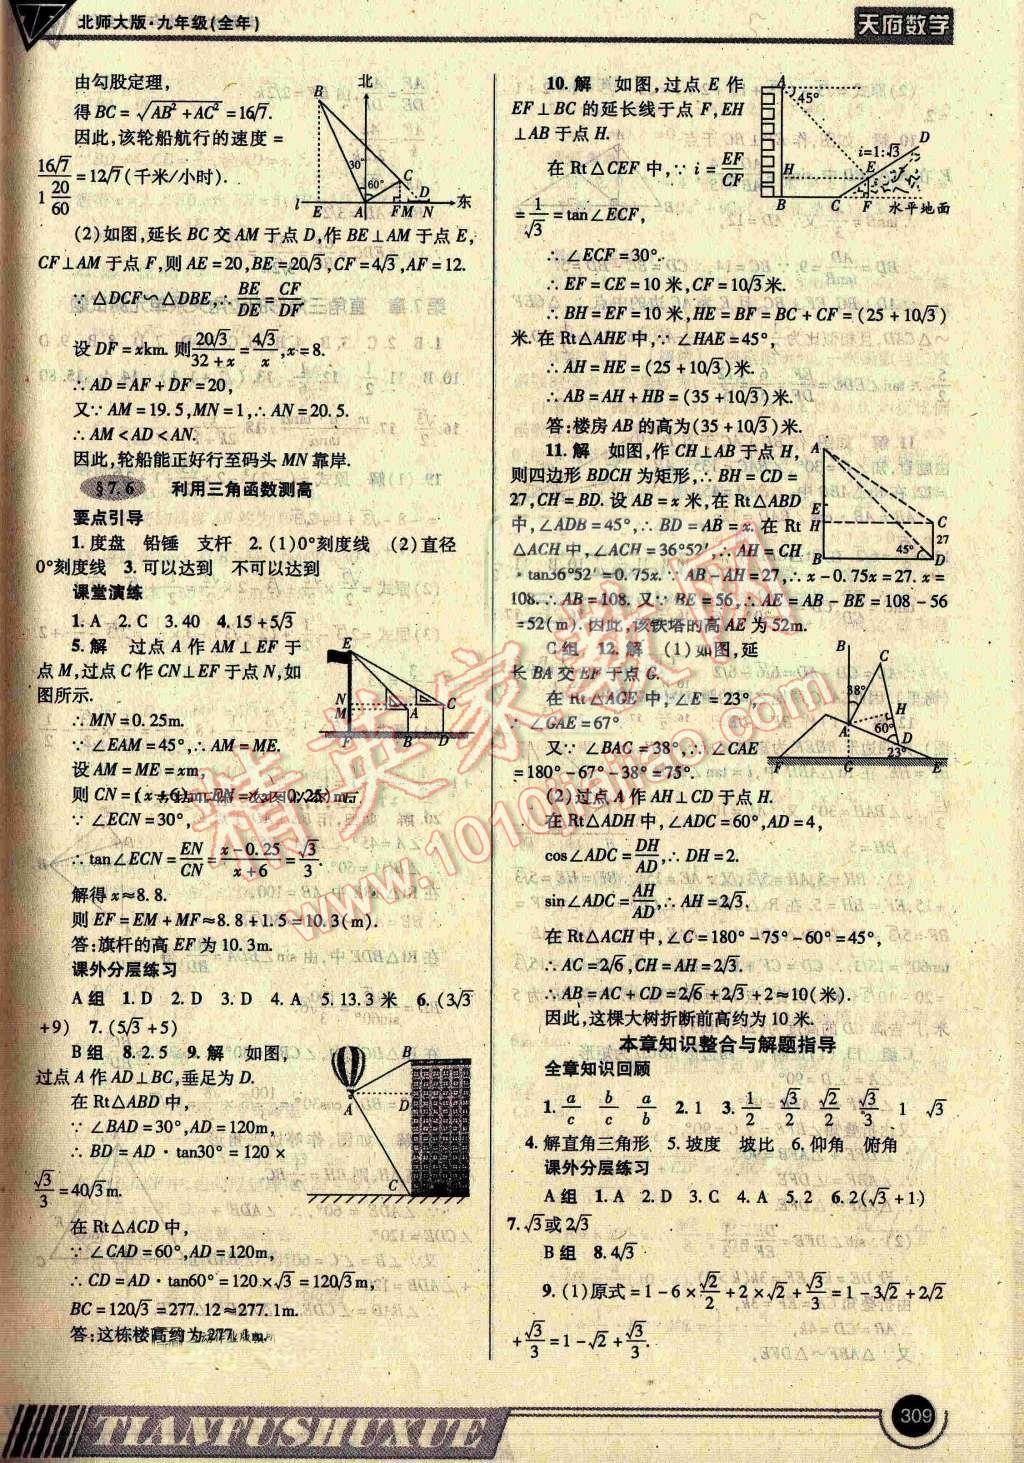 北师大版·九年级(全年)
天府数学
由勾股定理，
得BC=√(AB²+AC²)=16√7.
因此，该轮船航行的速度=
16√7/(1 20/60)=12√7(千米/小时).
北
B
30°
60°
C
D
l
E
A
F
M
N
东
(2)如图，延长BC交AM于点D，作BE⊥AM于点E，
CF⊥AM于点F，则AE=20，BE=20√3，CF=4√3，AF=12.
∵△DCF∽△DBE，∴BE/DE=CF/DF.
设DF=xkm. 则20√3/(32+x)=4√3/x，x=8.
∴AD=AF+DF=20，
又∵AM=19.5，MN=1，∴AN=20.5.
∴AM<AD<AN.
因此，轮船能正好行至码头MN靠岸.
§7.6 利用三角函数测高
要点引导
1.度盘 铅锤 支杆 2.(1)0°刻度线 (2)直径
0°刻度线 3.可以达到 不可以达到
课堂演练
1.A 2.C 3.40 4.15+5√3
5.解 过点A作AM⊥EF于
点M，过点C作CN⊥EF于点N，如
图所示.
∴MN=0.25m.
∵∠EAM=45°，∴AM=ME.
设AM=ME=xm，
则CN=(x+6)m，EN=(x-0.25)m.
∵∠ECN=30°，
∴tan∠ECN=EN/CN=(x-0.25)/(x+6)=√3/3.
解得x≈8.8.
则EF=EM+MF≈8.8+1.5=10.3(m).
答：旗杆的高EF为10.3m.
E
N
M
A
C
F
B
D
课外分层练习
A组 1.D 2.D 3.D 4.A 5.13.3米 6.(3√3
+9) 7.(5√3+5)
B组 8.2.5 9.解 如图，
过点A作AD⊥BC，垂足为D.
在Rt△ABD中，
∵∠BAD=30°，AD=120m，
∴BD=AD·tan30°=120×
√3/3=40√3m.
在Rt△ACD中，
∵∠CAD=60°，AD=120m，
∴CD=AD·tan60°=120×√3=120√3m，
BC=120√3=277.12≈277.1m.
答：这栋楼高约为277.1m.
A
B
D
C
10.解 如图，过点E作
EF⊥BC的延长线于点F，EH
⊥AB于点H.
在Rt△CEF中，∵i=EF/CF
=1/√3=tan∠ECF，
∴∠ECF=30°.
∴EF=CE=10米，CF=10√3米.
∴BH=EF=10米，HE=BF=BC+CF=(25+10√3)
米. 在Rt△AHE中，∵∠HAE=45°，
∴AH=HE=(25+10√3)米.
∴AB=AH+HB=(35+10√3)米.
答：楼房AB的高为(35+10√3)米.
A
45°
D
i=1:√3
H
E
B
C
F
水平地面
11.解 如图，作CH⊥AB于点H，
则四边形BDCH为矩形，∴BH=CD=
27，CH=BD. 设AB=x米，在Rt△ABD
中，∠ADB=45°，∴BD=AB=x. 在Rt
△ACH中，∠ACH=36°52′，∴AH=CH
·tan36°52′=0.75x. ∵AB-AH=27，∴x-0.75x=27. x=
108. ∴AB=108. 又∵BE=56，∴AE=AB-BE=108-56
=52(m). 因此，该铁塔的高AE为52m.
A
E
H
B
C
27
45°
D
C组 12.解 (1)如图，延
长BA交EF于点G.
在Rt△AGE中，∠E=23°，
∵∠GAE=67°
又∵∠BAC=38°，∴∠CAE
=180°-67°-38°=75°.
(2)过点A作AH⊥CD于点H.
在Rt△ADH中，∠ADC=60°，AD=4，
cos∠ADC=DH/AD，∴DH=2.
sin∠ADC=AH/AD，∴AH=2√3.
在Rt△ACH中，∠C=180°-75°-60°=45°，
∴AC=2√6，CH=AH=2√3.
∴AB=AC+CD=2√6+2√3+2≈10(米).
因此，这棵大树折断前高约为10米.
B
C
38°
H
A
60°
D
23°
F
G
E
本章知识整合与解题指导
全章知识回顾
1. a/c b/c a/b 2.1 3. 1/2 √3/2 √2/2 √3/3 1 √3
4.解直角三角形 5.坡度 坡比 6.仰角 俯角
课外分层练习
A组 1.A 2.D 3.C 4.A 5.2 6.2(√3+1)
7.√3或2√3
B组 8.4√3
9.(1)原式=1-6×√2/2+2×√2+√3/3=1-3√2+2√2
+√3/3=1-√2+√3/3.
精英家教网
www.1010jiajiao.com
TIANFUSHUXUE
309